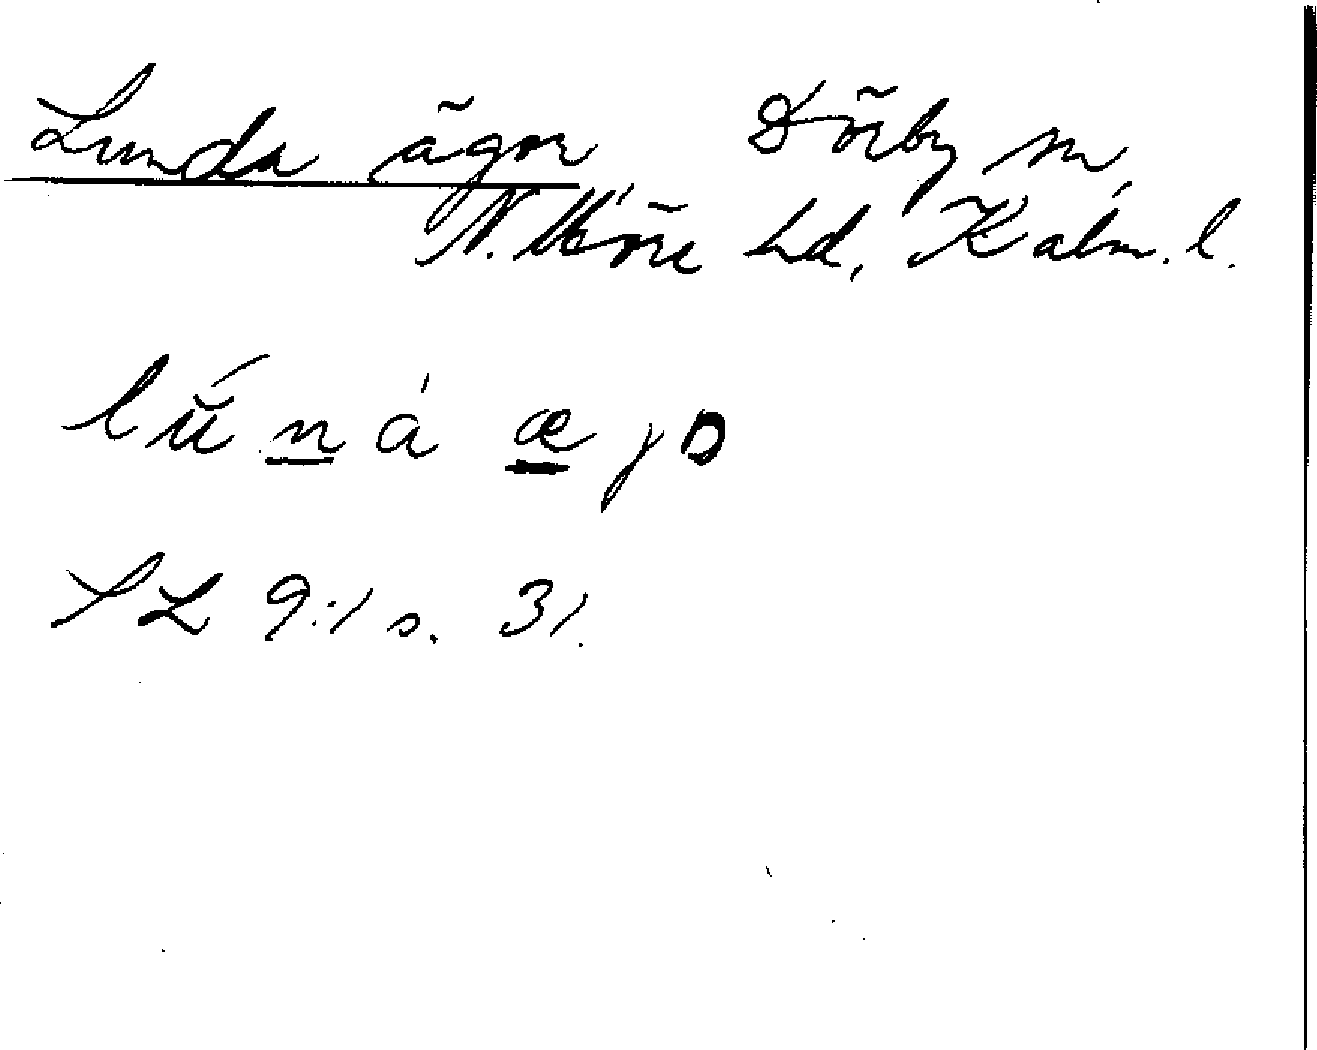 Lunda ägor Dörby sn,
N. Möre hd, Kalm. l.
lŭ́ṉá æ̱jɒ
SL 9:1 s. 31.